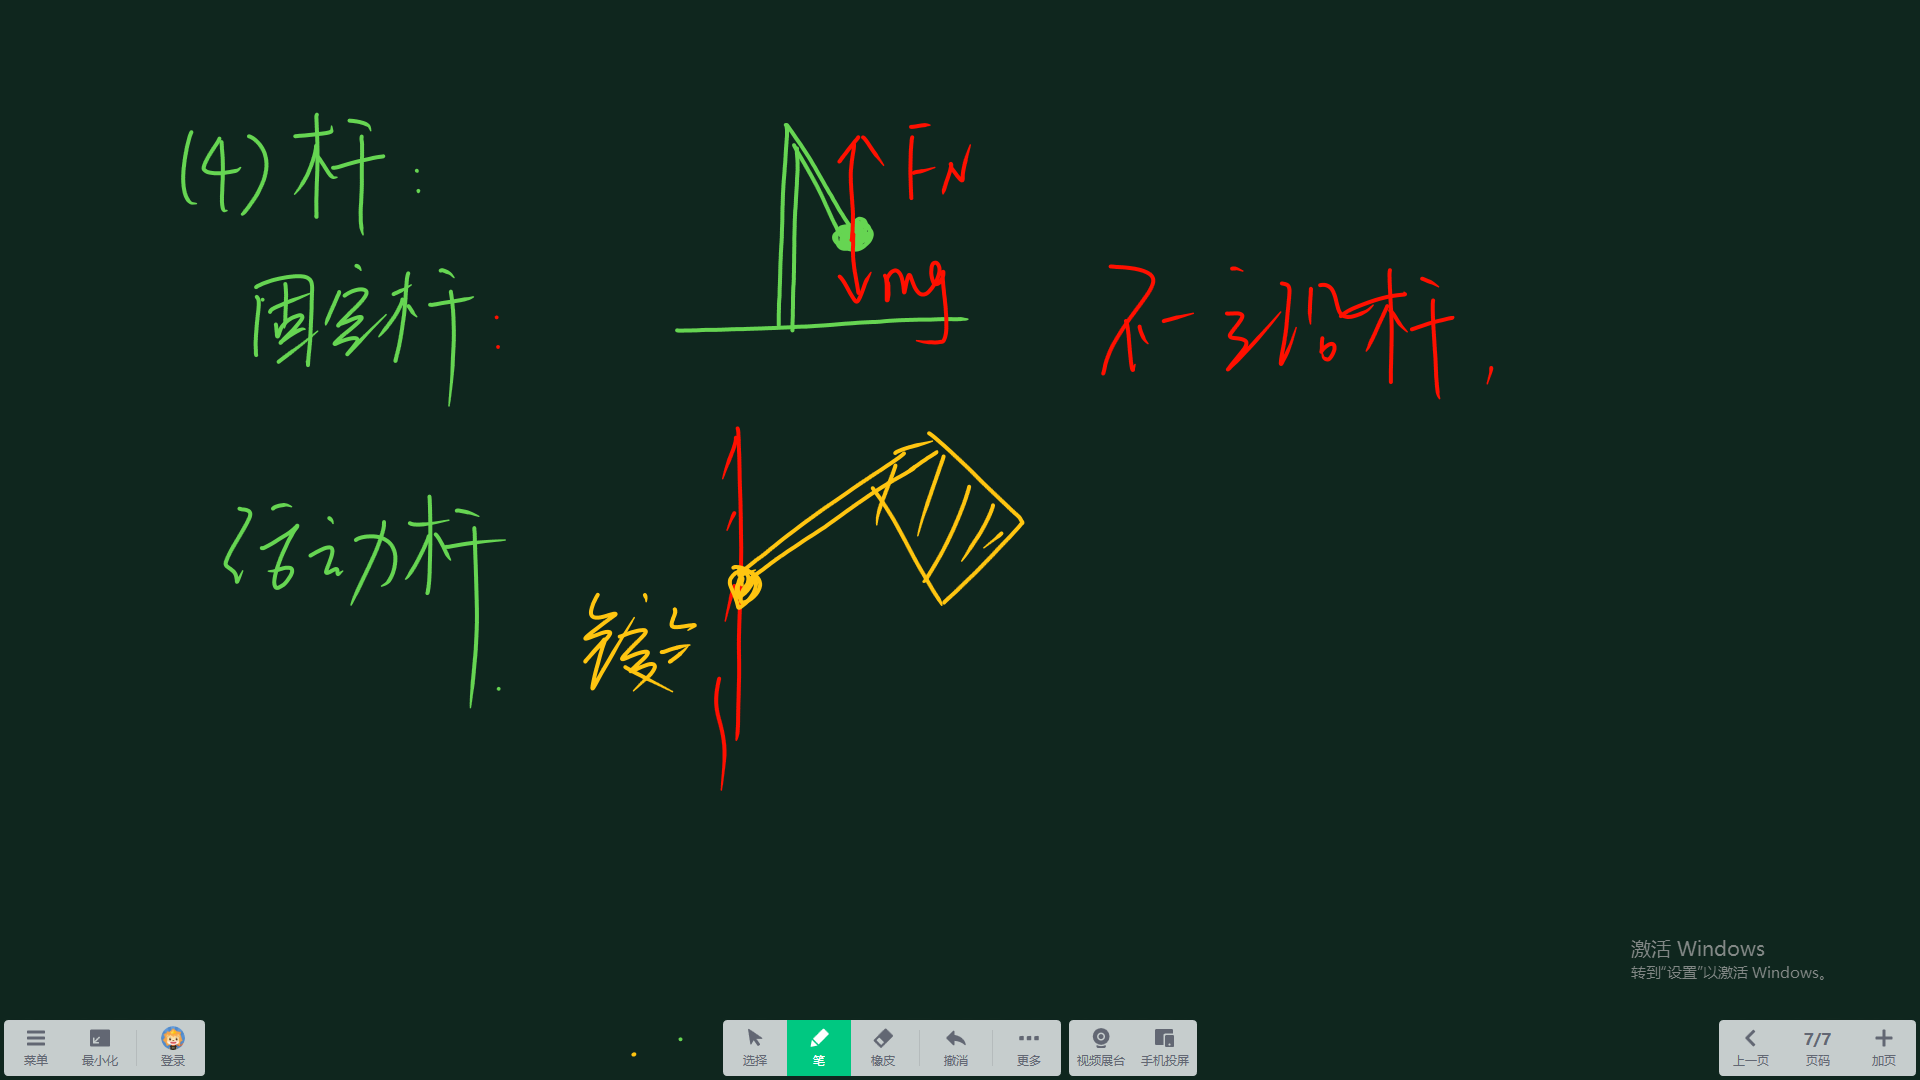 (4) 杆:
FN
mg
固定杆:
不一定沿杆.
活动杆.
铰
激活 Windows
转到“设置”以激活 Windows。
菜单
最小化
登录
选择
笔
橡皮
撤消
更多
视频展台
手机投屏
上一页
7/7
页码
加页